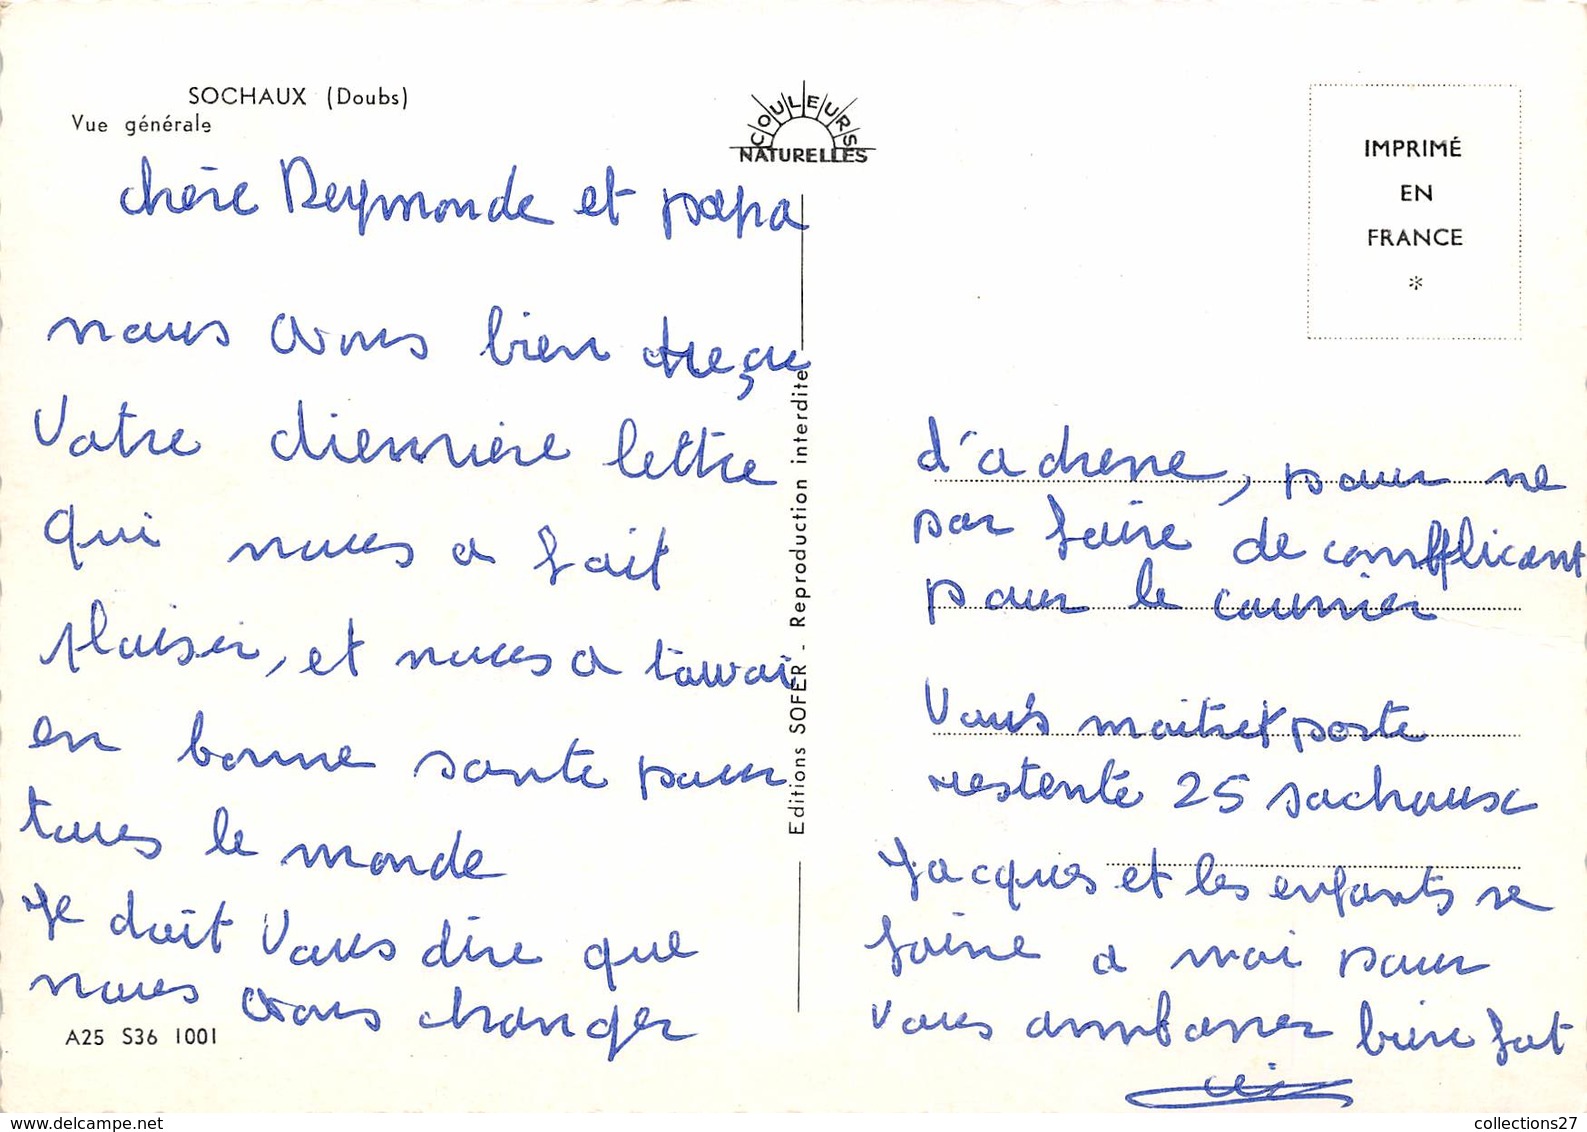 SOCHAUX (Doubs)
Vue générale
COULEURS
NATURELLES
IMPRIMÉ
EN
FRANCE
*
chère Reymonde et papa
nous avons bien reçu
Votre dernière lettre
qui nous a fait
plaisir, et nous a
en bonne sante pour
tous le monde
Je doit Vous dire que
nous avons changer
A25 S36 1001
Editions SOFER - Reproduction interdite
d'adresse, pour ne
pas faire de
pour le courrier
Vous maitrer poste
restente 25 sochaux
Jacques et les enfants se
foine a moi pour
Vous ambasser bien fort
collections27